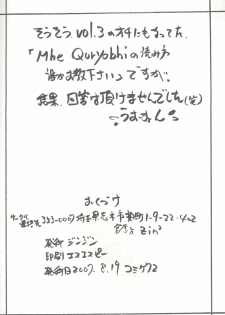 そうそう vol.3のオチにもなってた、
「Mhe Quryobhiの読み方
誰かお教え下さい」ですが、
結果、回答は頂けませんでした(笑)
おくづけ
サークル
連絡先 353-0007 埼玉県志木市柏町1-9-22-402
Zin²
発行 ジンジン
印刷 エスエスピー
発行日 2007.8.19 コミケ72